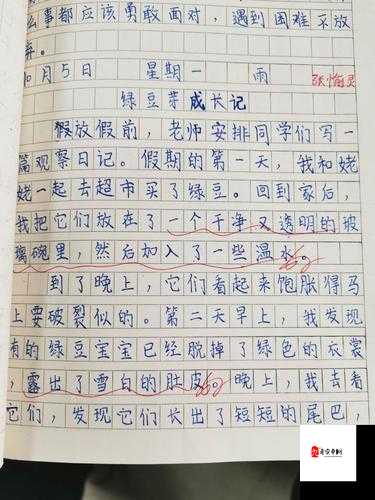 么事都应该勇敢面对，遇到困难不放
弃。
10月5日 星期一 雨
张愉灵
绿豆芽成长记
假放假前，老师安排同学们写一
篇观察日记。假期的第一天，我和姥
姥一起去超市买了绿豆。回到家后，
我把它们放在了一个干净又透明的玻
璃碗里，然后加入了一些温水。
到了晚上，它们看起来饱胀得马
上要破裂似的。第二天早上，我发现
有的绿豆宝宝已经脱掉了绿色的衣裳
，露出了雪白的肚皮。晚上，我去看
它们，发现它们长出了短短的尾巴，